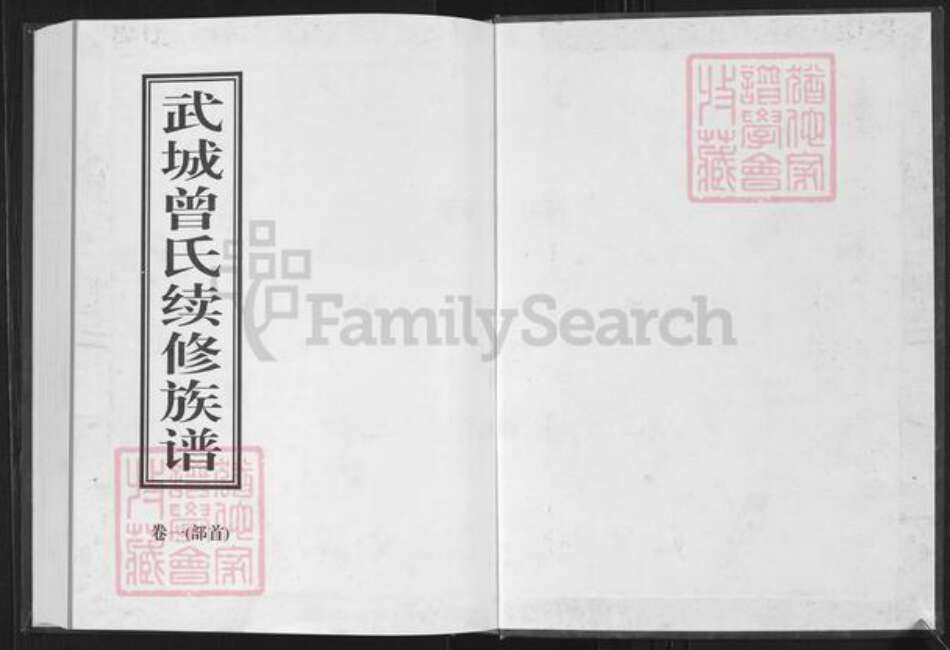 武城曾氏续修族谱
卷一(部首)
猶他家
譜學會
收藏
FamilySearch
猶他家
譜學會
收藏